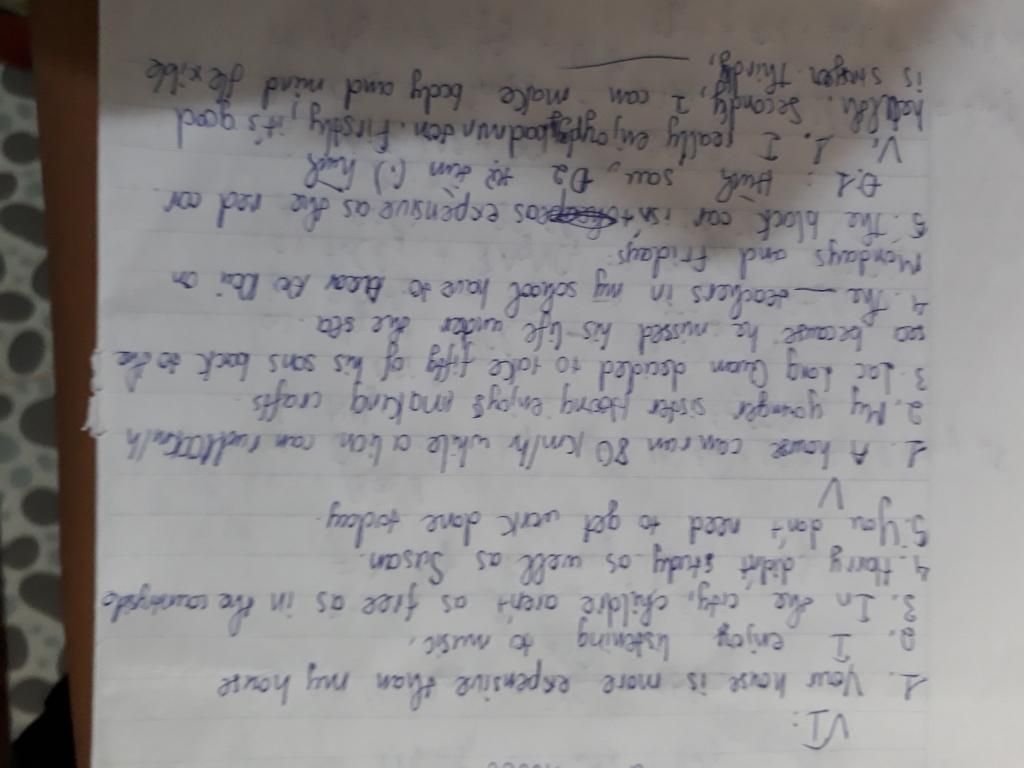 VI:
1. Your house is more expensive than my house
2. I enjoy listening to music.
3. In the city, childre aren't as free as in the countryside
4. Harry didn't study as well as Susan.
5. You don't need to get work done today.
V
1 A house can run 80 km/h while a lion can km/h
2. My younger sister Hoang enjoys making crafts
3. Lac Long Quan decided to take fifty of his sons back to the
sea because he missed his life under the sea.
4. The teachers in my school have to Ao Dai on
Mondays and Fridays.
5. The black car isn't as expensive as the red car
Đ.1: Huh sau, Đ2
V, 1. I really enjoy badminton. Firstly, it's good
health. Secondly, I can make body and mind flexible
is Thirdly,